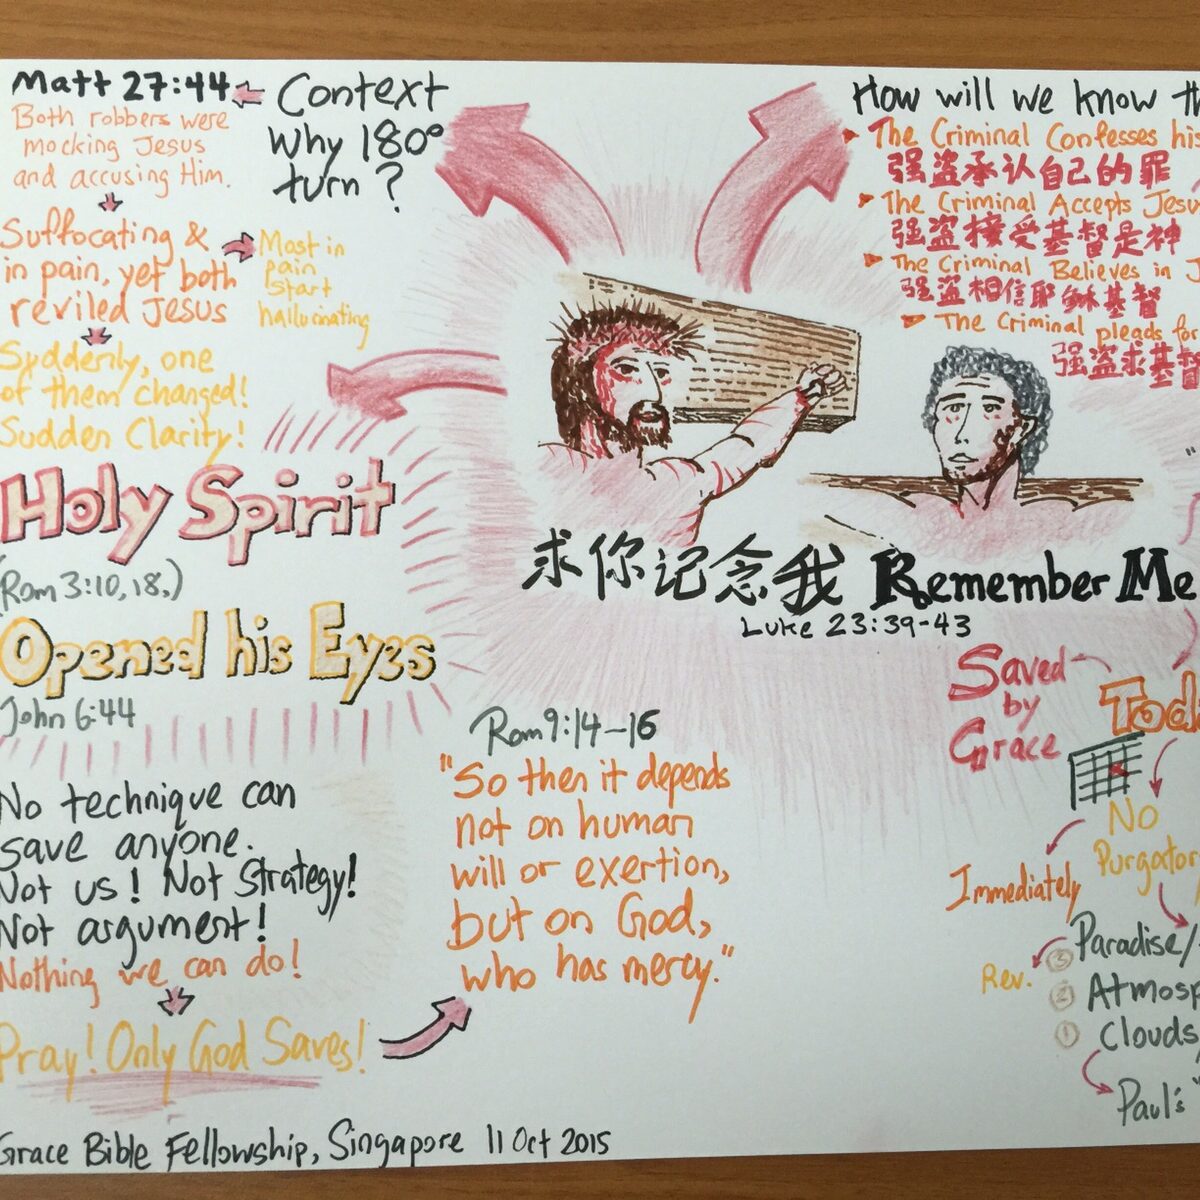 Matt 27:44
Both robbers were
mocking Jesus
and accusing Him.
Suffocating &
in pain, yet both
reviled Jesus
Most in
pain
start
hallucinating
Suddenly, one
of them changed!
Sudden Clarity!
Holy Spirit
(Rom 3:10, 18,)
Opened his Eyes
John 6:44
No technique can
save anyone.
Not us! Not Strategy!
Not argument!
Nothing we can do!
Pray! Only God Saves!
Context
Why 180°
turn?
How will we know
The Criminal Confesses his
强盗承认自己的罪
The Criminal Accepts
强盗接受基督是神
The Criminal Believes in
强盗相信耶稣基督
The Criminal pleads for
强盗求基督
求你记念我 Remember Me
Luke 23:39-43
Rom 9:14-16
"So then it depends
not on human
will or exertion,
but on God,
who has mercy."
Saved
by
Grace
No
Immediately
Paradise/
Rev.
③
② 
① Clouds,
Paul's "
Grace Bible Fellowship, Singapore 11 Oct 2015